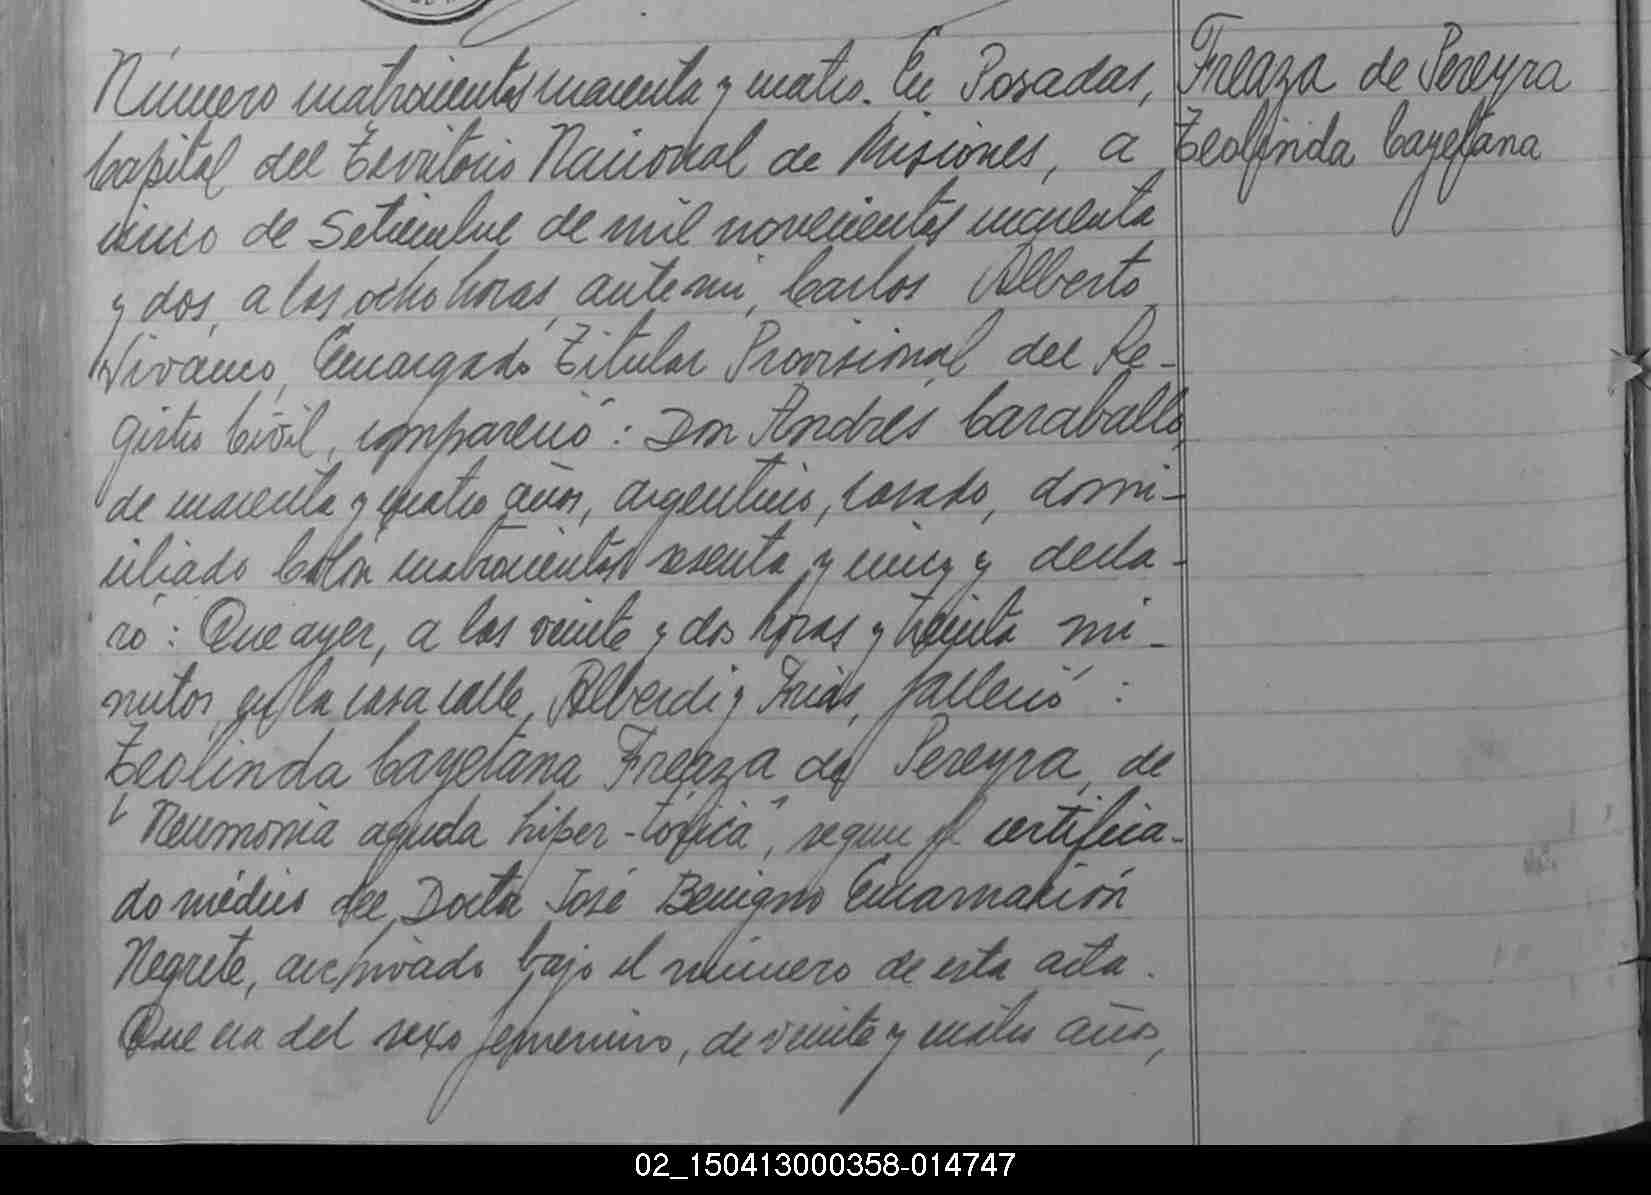 Número cuatrocientos cuarenta y cuatro. En Posadas,
Capital del Territorio Nacional de Misiones, a
cinco de Setiembre de mil novecientos cuarenta
y dos, a las ocho horas, ante mi, Carlos Alberto
Vivanco, Encargado Titular Provisional del Re-
gistro Civil, compareció: Don Andrés Caraballo,
de cuarenta y cuatro años, argentino, casado, domi-
ciliado Colón cuatrocientos sesenta y cinco y decla-
ró: Que ayer, a las veinte y dos horas y treinta mi-
nutos, en la casa calle, Alberdi y Frias, falleció:
Teolinda Cayetana Freaza de Pereyra, de
"Neumonia aguda hiper-tóxica", segun el certifica-
do médico del Doctor José Benigno Encarnación
Negrete, archivado bajo el número de esta acta.
Que era del sexo femenino, de veinte y cuatro años,
Freaza de Pereyra
Teolinda Cayetana
02_150413000358-014747